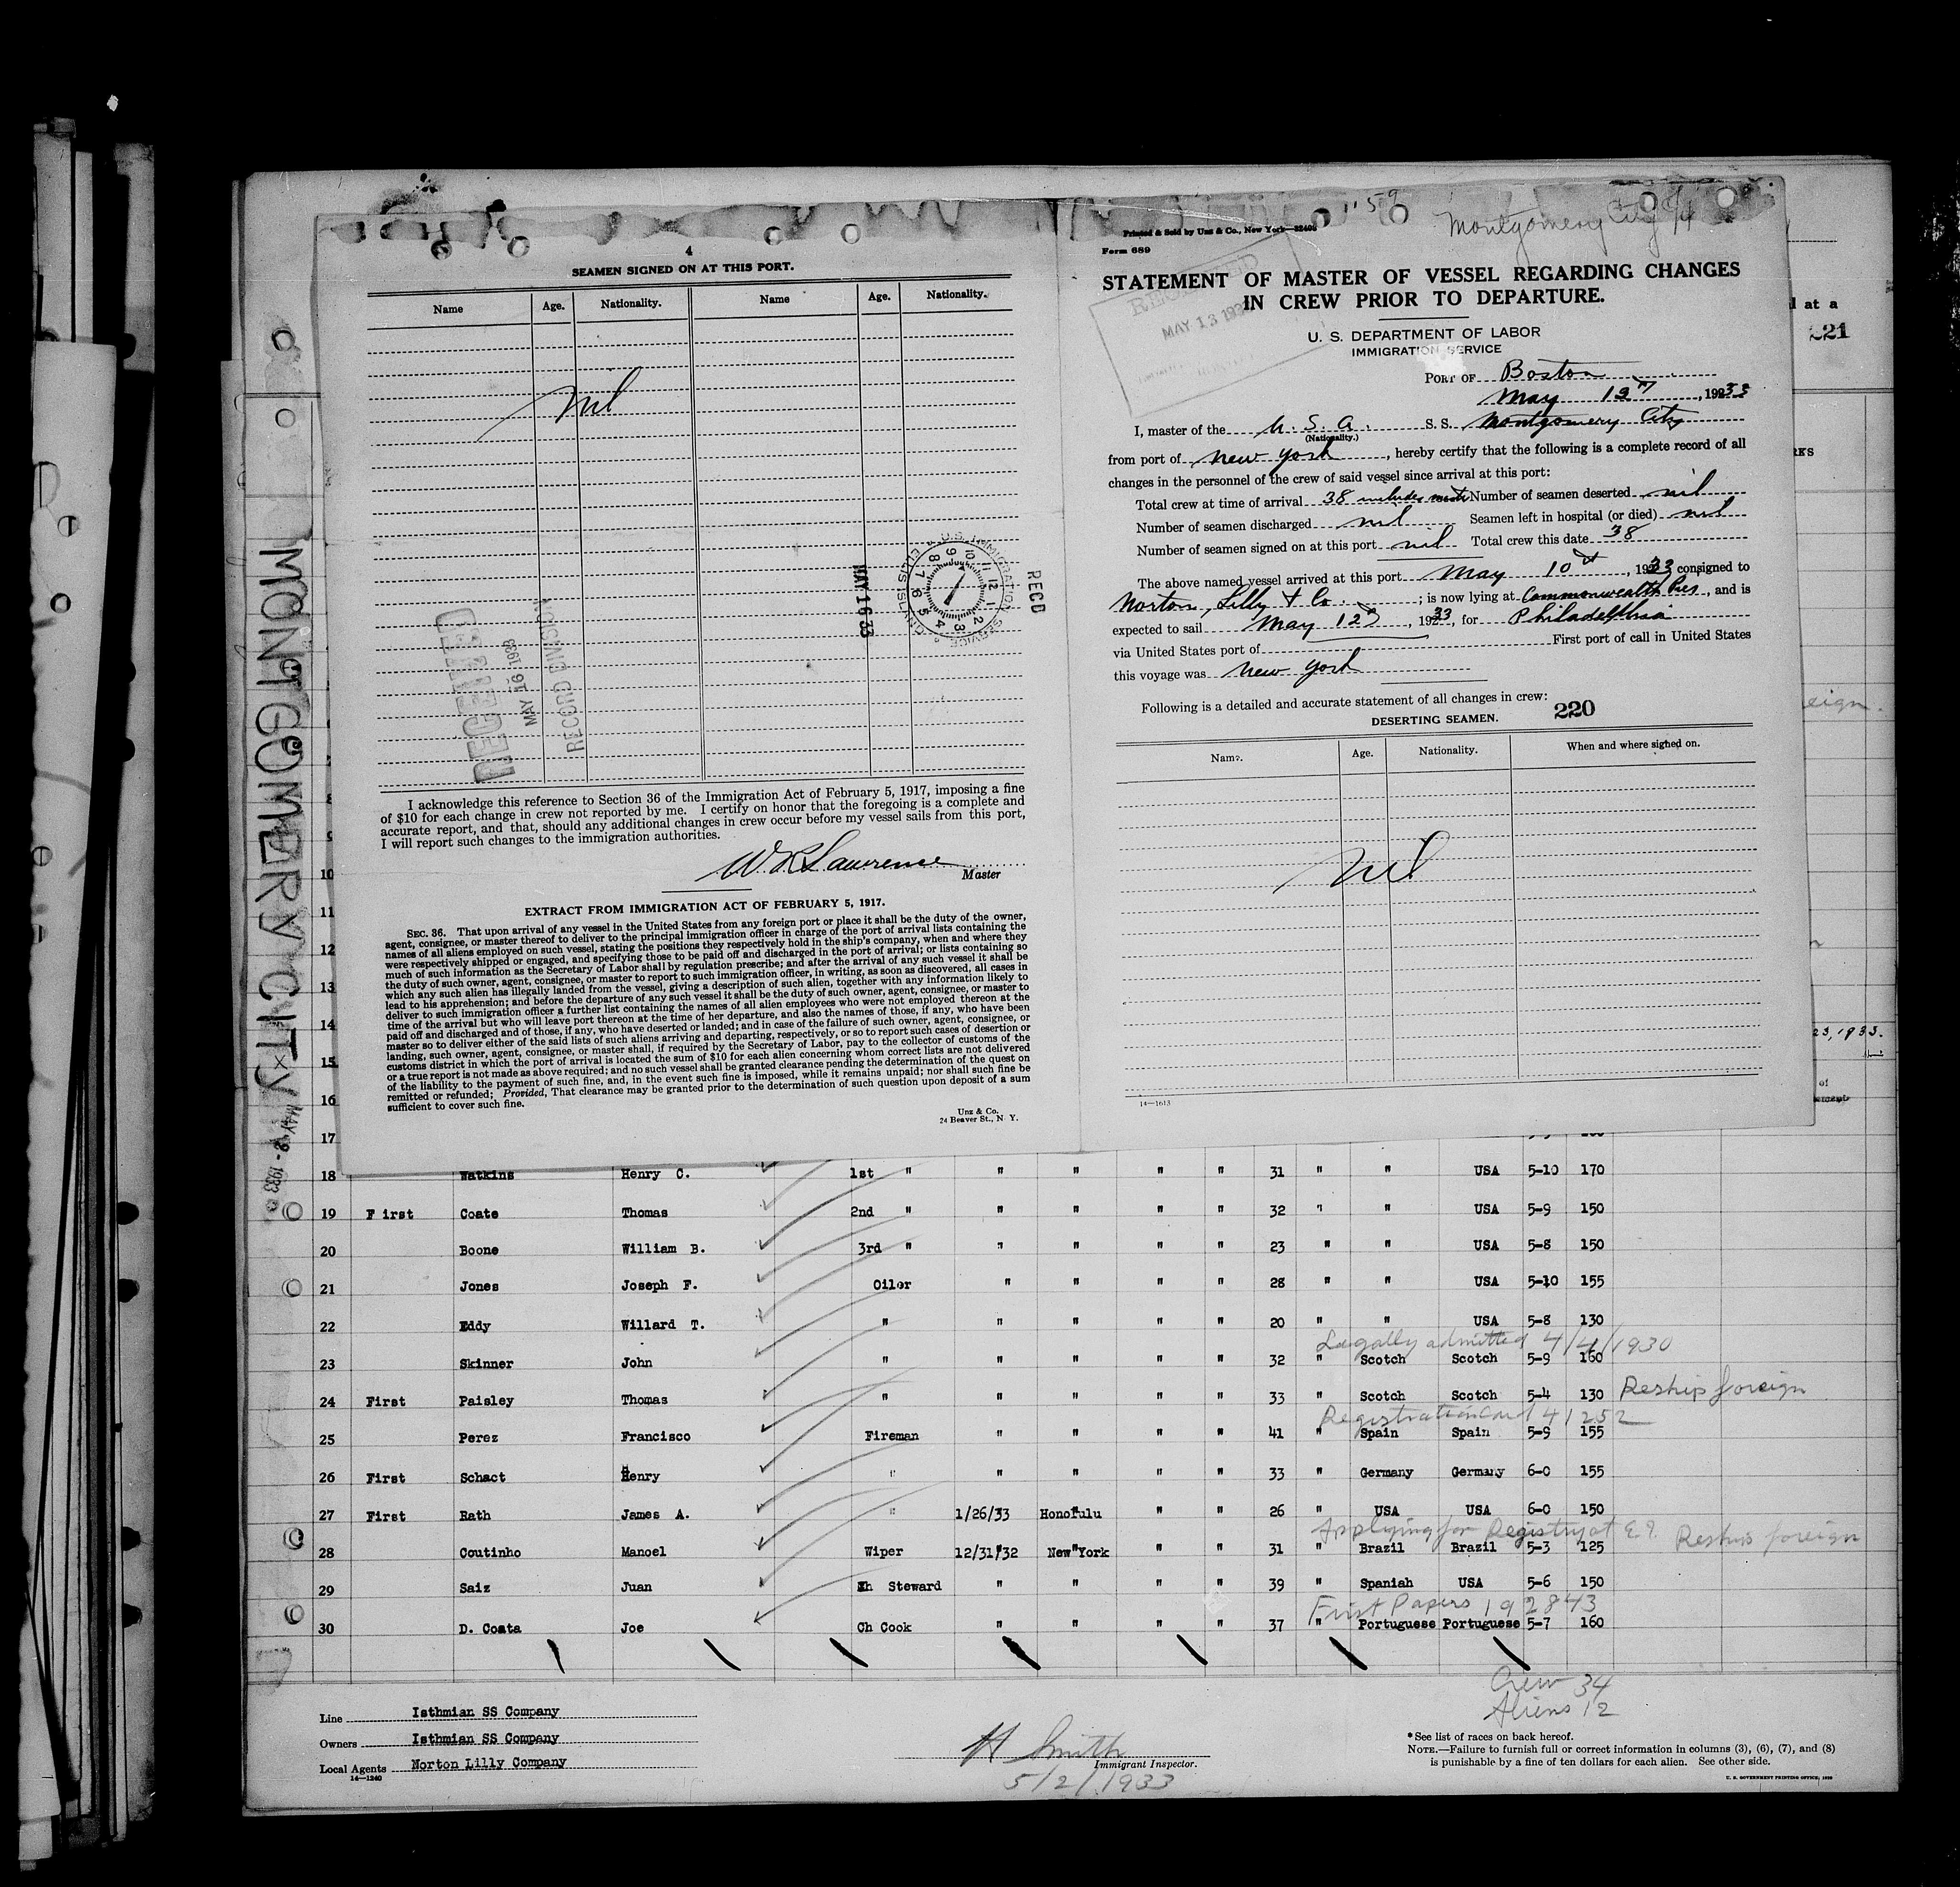 4
SEAMEN SIGNED ON AT THIS PORT.
Name Age. Nationality. Name Age. Nationality.
nil
RECEIVED
MAY 16 1933
RECORD DIVISION
MAY 16 33
U.S. IMMIGRATION SERVICE
ELLIS ISLAND, N.Y.
RECD
I acknowledge this reference to Section 36 of the Immigration Act of February 5, 1917, imposing a fine
of $10 for each change in crew not reported by me. I certify on honor that the foregoing is a complete and
accurate report, and that, should any additional changes in crew occur before my vessel sails from this port,
I will report such changes to the immigration authorities.
Lawrence
Master
EXTRACT FROM IMMIGRATION ACT OF FEBRUARY 5, 1917.
SEC. 36. That upon arrival of any vessel in the United States from any foreign port or place it shall be the duty of the owner,
agent, consignee, or master thereof to deliver to the principal immigration officer in charge of the port of arrival lists containing the
names of all aliens employed on such vessel, stating the positions they respectively hold in the ship's company, when and where they
were respectively shipped or engaged, and specifying those to be paid off and discharged in the port of arrival; or lists containing so
much of such information as the Secretary of Labor shall by regulation prescribe; and after the arrival of any such vessel it shall be
the duty of such owner, agent, consignee, or master to report to such immigration officer, in writing, as soon as discovered, all cases in
which any such alien has illegally landed from the vessel, giving a description of such alien, together with any information likely to
lead to his apprehension; and before the departure of any such vessel it shall be the duty of such owner, agent, consignee, or master to
deliver to such immigration officer a further list containing the names of all alien employees who were not employed thereon at the
time of the arrival but who will leave port thereon at the time of her departure, and also the names of those, if any, who have been
paid off and discharged and of those, if any, who have deserted or landed; and in case of the failure of such owner, agent, consignee, or
master so to deliver either of the said lists of such aliens arriving and departing, respectively, or so to report such cases of desertion or
landing, such owner, agent, consignee, or master shall, if required by the Secretary of Labor, pay to the collector of customs of the
customs district in which the port of arrival is located the sum of $10 for each alien concerning whom correct lists are not delivered
or a true report is not made as above required; and no such vessel shall be granted clearance pending the determination of the quest on
of the liability to the payment of such fine, and, in the event such fine is imposed, while it remains unpaid; nor shall such fine be
remitted or refunded; Provided, That clearance may be granted prior to the determination of such question upon deposit of a sum
sufficient to cover such fine.
Unz & Co.
24 Beaver St., N. Y.
Montgomery City
Printed & Sold by Unz & Co., New York
Form 689
STATEMENT OF MASTER OF VESSEL REGARDING CHANGES
IN CREW PRIOR TO DEPARTURE.
RECEIVED
MAY 13 193
U. S. DEPARTMENT OF LABOR
IMMIGRATION SERVICE
PORT OF Boston
May 12th, 1933
I, master of the U. S. A. S. S. Montgomery City
(Nationality.)
from port of New York, hereby certify that the following is a complete record of all
changes in the personnel of the crew of said vessel since arrival at this port:
Total crew at time of arrival 38 includes master Number of seamen deserted nil
Number of seamen discharged nil Seamen left in hospital (or died) nil
Number of seamen signed on at this port nil Total crew this date 38
The above named vessel arrived at this port May 10th, 1933 consigned to
Norton, Lilly & Co.; is now lying at Commonwealth Pier, and is
expected to sail May 12, 1933, for Philadelphia
via United States port of First port of call in United States
this voyage was New York
Following is a detailed and accurate statement of all changes in crew:
DESERTING SEAMEN. 220
Name. Age. Nationality. When and where signed on.
nil
14—1613
d at a
221
RKS
eign.
23, 1933.
of
MONTGOMERY CITY
MAY 2 - 1933
8
9
10
11
12
13
14
15
16
17
18 Watkins Henry C. 1st " " " " " 31 " " USA 5-10 170
19 First Coate Thomas 2nd " " " " " 32 " " USA 5-9 150
20 Boone William B. 3rd " " " " " 23 " " USA 5-8 150
21 Jones Joseph F. Oiler " " " " 28 " " USA 5-10 155
22 Eddy Willard T. " " " " " 20 " " USA 5-8 130
Legally admitted 4/4/1930
23 Skinner John " " " " " 32 " Scotch Scotch 5-9 160
24 First Paisley Thomas " " " " " 33 " Scotch Scotch 5-4 130 Reship foreign
Registration Card 141252
25 Perez Francisco Fireman " " " " 41 " Spain Spain 5-9 155
26 First Schact Henry " " " " " 33 " Germany Germany 6-0 155
27 First Rath James A. " 1/26/33 Honolulu " " 26 " USA USA 6-0 150
Applying for Registry at E.I. Reship foreign
28 Coutinho Manoel Wiper 12/31/32 New York " " 31 " Brazil Brazil 5-3 125
29 Saiz Juan Ch Steward " " " " 39 " Spaniah USA 5-6 150
First Papers 192843
30 D. Coata Joe Ch Cook " " " " 37 " Portuguese Portuguese 5-7 160
Crew 34
Aliens 12
Line Isthmian SS Company
Owners Isthmian SS Company
Local Agents Norton Lilly Company
14—1240
H Smith
Immigrant Inspector.
5/2/1933
* See list of races on back hereof.
NOTE.—Failure to furnish full or correct information in columns (3), (6), (7), and (8)
is punishable by a fine of ten dollars for each alien. See other side.
U. S. GOVERNMENT PRINTING OFFICE: